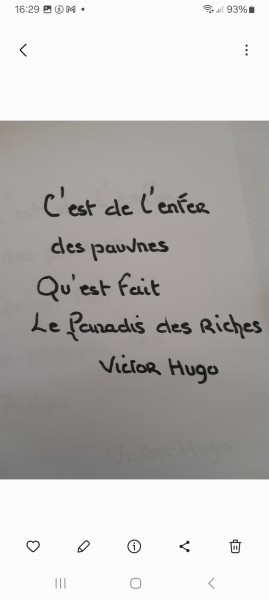 16:29
93%
C'est de l'enfer
des pauvres
Qu'est fait
Le Paradis des Riches
Victor Hugo